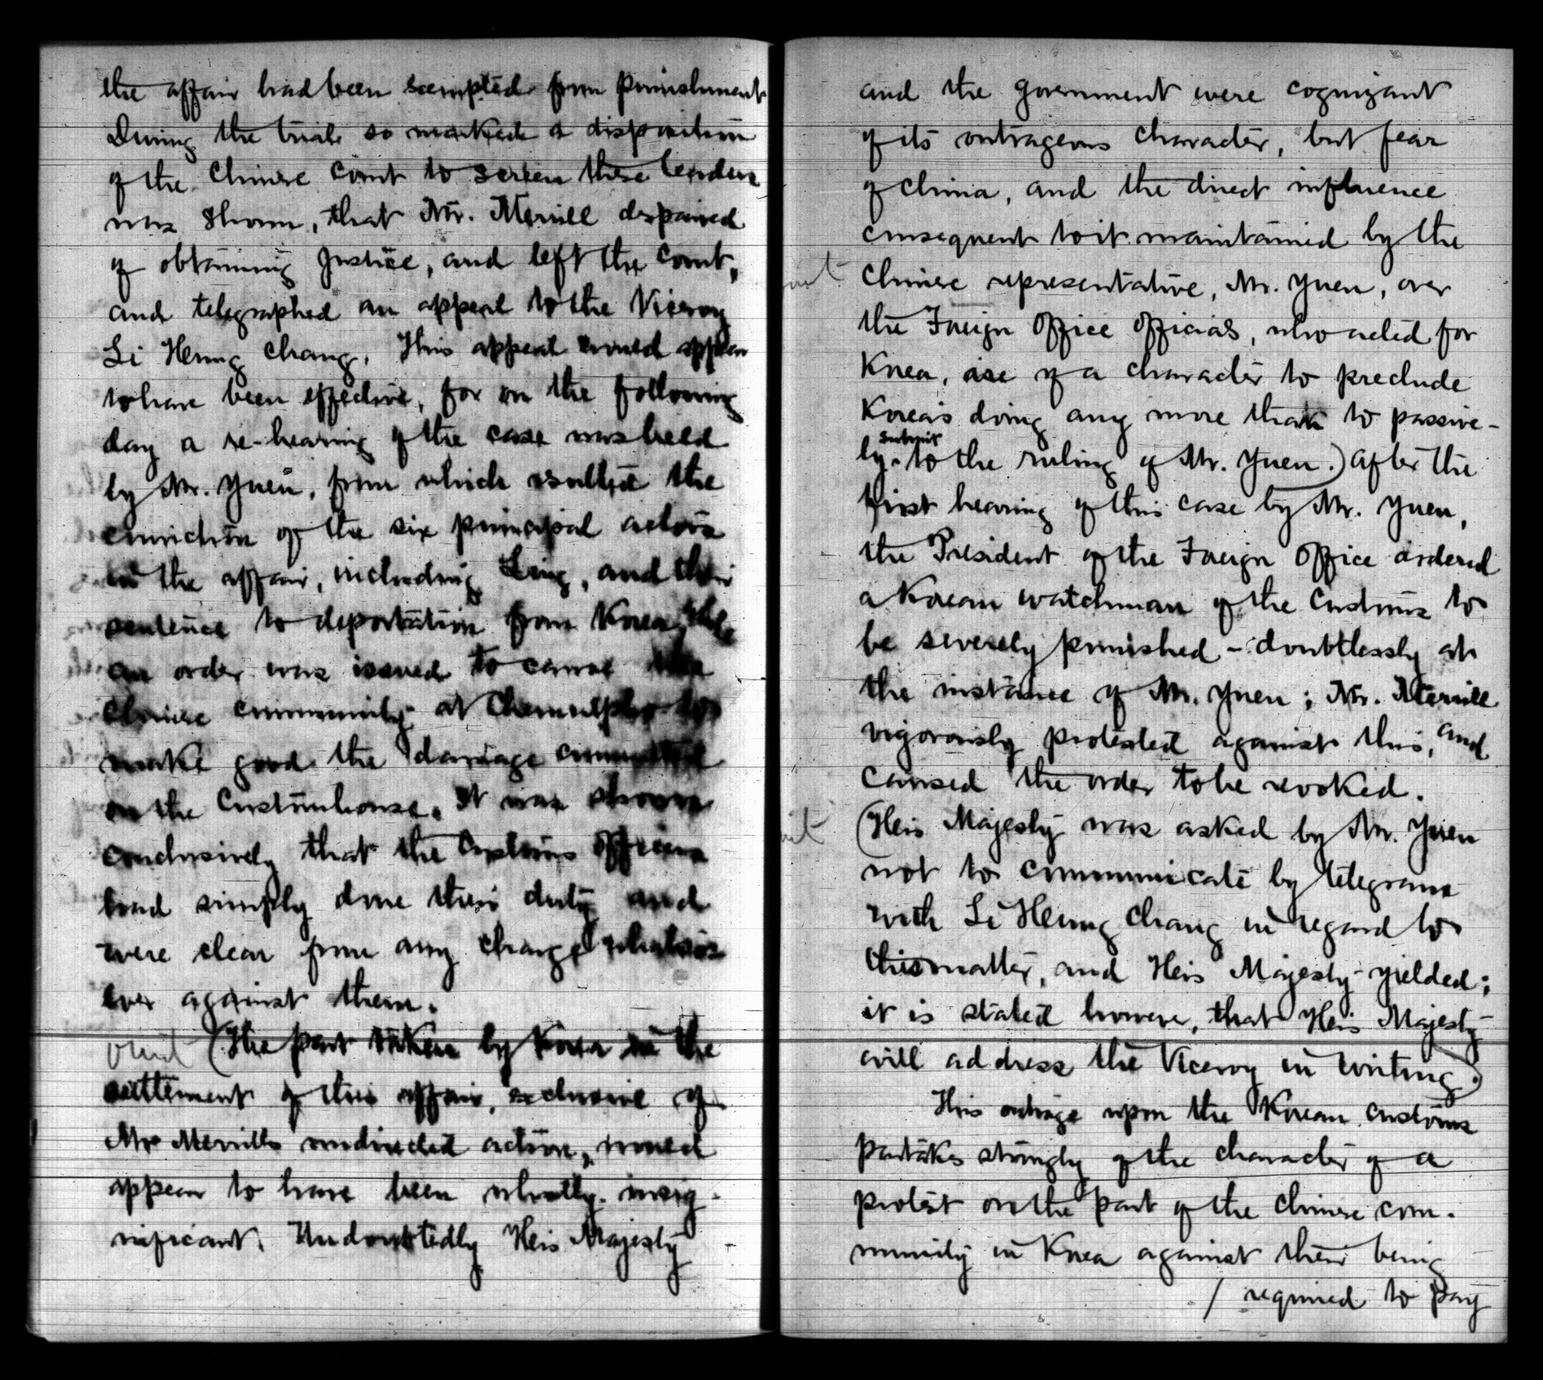 the affair had been exempted from punishment
During the trial so marked a disposition
of the Chinese Court to screen these leaders
was shown, that Mr. Merrill despaired
of obtaining Justice, and left the Court,
and telegraphed an appeal to the Viceroy
Li Hung Chang. This appeal would appear
to have been effective, for on the following
day a re-hearing of the case was held
by Mr. Yuen, from which resulted the
conviction of the six principal actors
in the affair, including Ling, and their
sentence to deportation from Korea, while
an order was issued to cause the
Chinese community at Chemulpho to
make good the damage committed
on the Customhouse. It was shown
conclusively that the Customs officers
had simply done their duty and
were clear from any charge whatso
ever against them.
omit (The part taken by Korea in the
settlement of this affair, exclusive of
Mr. Merrills undirected action, would
appear to have been wholly insig-
nificant. Undoubtedly His Majesty
and the government were cognizant
of its outrageous character, but fear
of China, and the direct influence
consequent to it maintained by the
omit Chinese representative, Mr. Yuen, over
the Foreign Office officials, who acted for
Korea, are of a character to preclude
Korea's doing any more than to passive-
ly submit to the ruling of Mr. Yuen.) After the
first hearing of this case by Mr. Yuen,
the President of the Foreign Office ordered
a Korean watchman of the Customs to
be severely punished - doubtlessly at
the instance of Mr. Yuen; Mr. Merrill
vigorously protested against this, and
caused the order to be revoked.
omit (His Majesty was asked by Mr. Yuen
not to communicate by telegram
with Li Hung Chang in regard to
this matter, and His Majesty yielded;
it is stated however, that His Majesty
will address the Viceroy in writing.)
This outrage upon the Korean Customs
partakes strongly of the character of a
protest on the part of the Chinese com-
munity in Korea against their being
/ required to pay